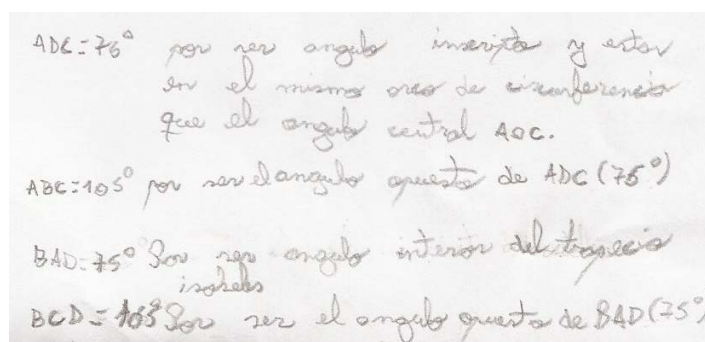 ADC=75° por ser angulo inscripto y estar
en el mismo arco de circunferencia
que el angulo central AOC.
ABC=105° por ser el angulo opuesto de ADC (75°)
BAD=75° Por ser angulo interior del trapecio
isoseles
BCD=105° Por ser el angulo opuesto de BAD (75°)